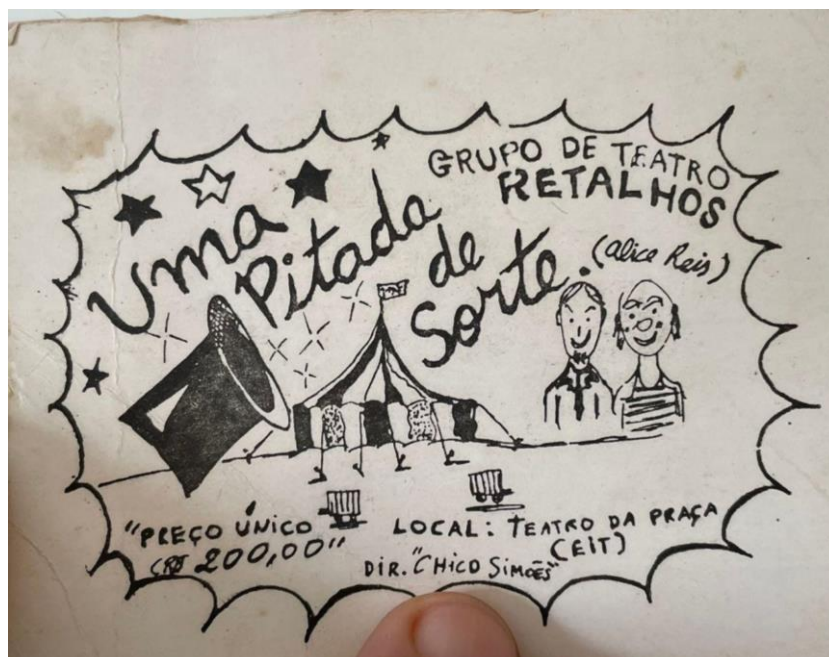 GRUPO DE TEATRO
RETALHOS
Uma
Pitada
de
Sorte.
(Alice Reis)
"PREÇO ÚNICO
CR$ 200,00"
LOCAL: TEATRO DA PRAÇA
(EIT)
DIR. "CHICO SIMÕES"